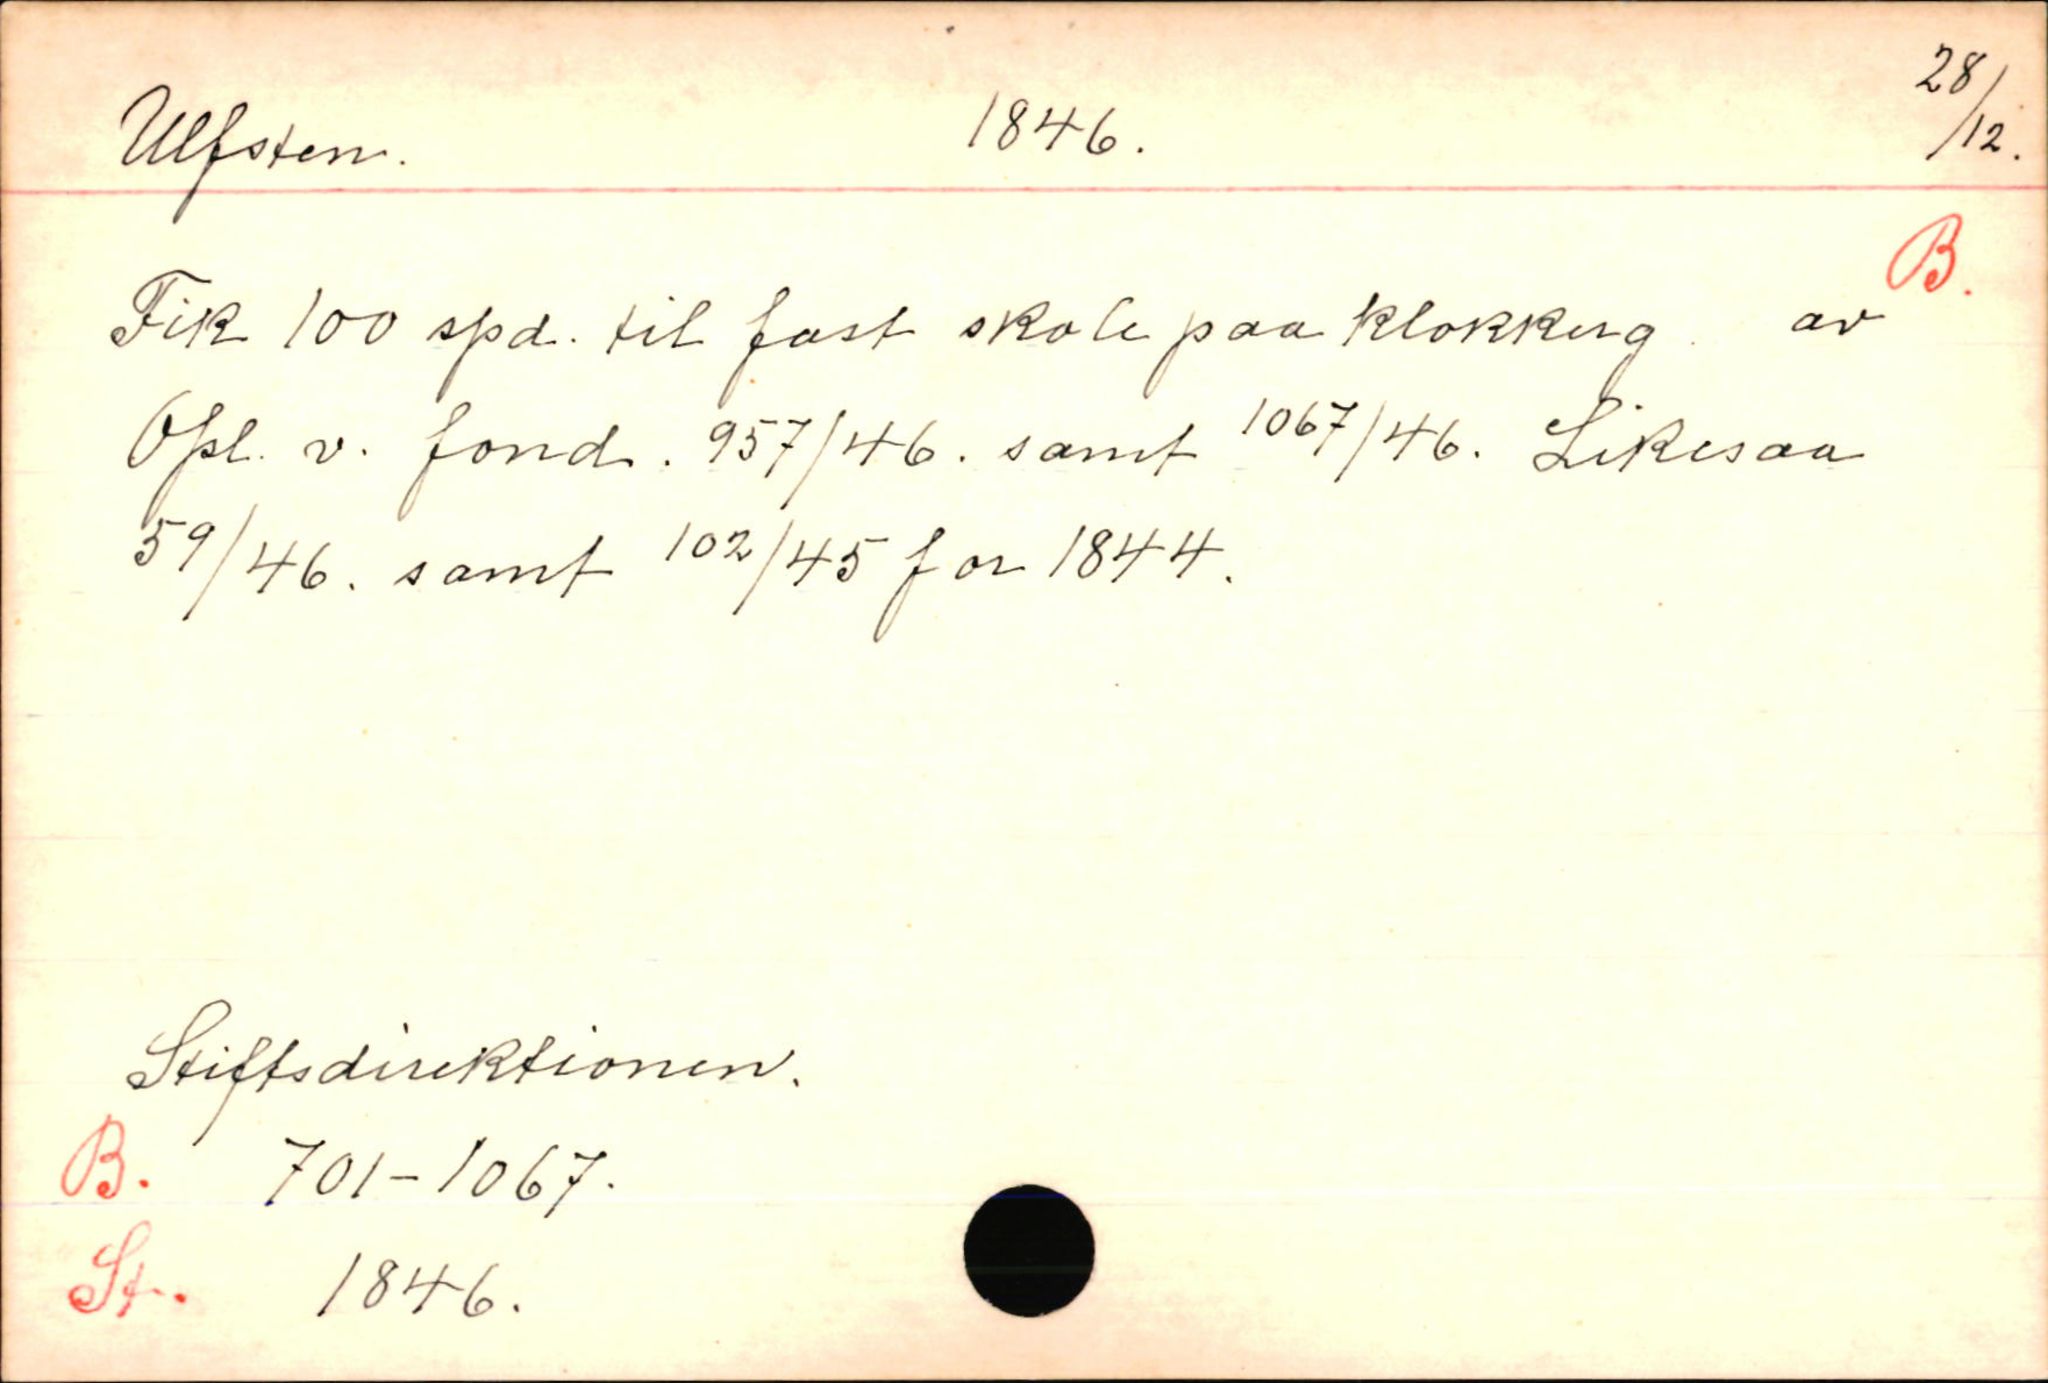 Ulfsten. 1846. 28/12.
B.
Fik 100 spd. til fast skole paa klokkerg. av
Opl. v. fond. 957/46. samt 1067/46. Likesaa
59/46. samt 102/45 for 1844.
Stiftsdirektionen.
B. 701-1067.
St. 1846.